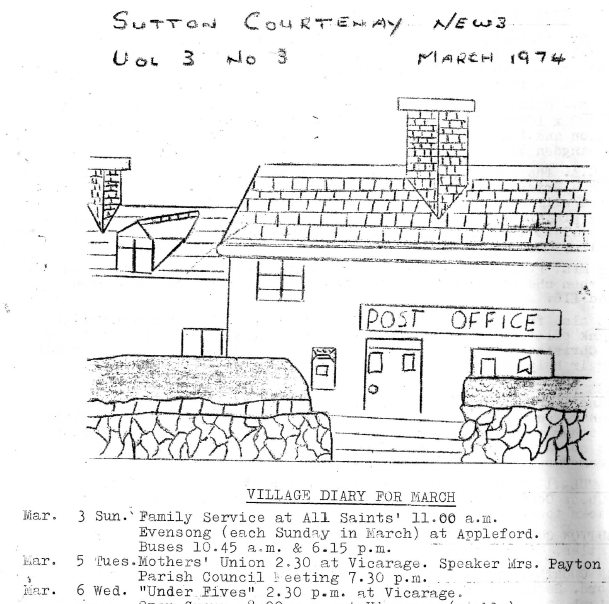 SUTTON COURTENAY NEWS
VOL 3 NO 3 MARCH 1974
POST OFFICE
VILLAGE DIARY FOR MARCH
Mar. 3 Sun. Family Service at All Saints' 11.00 a.m.
Evensong (each Sunday in March) at Appleford.
Buses 10.45 a.m. & 6.15 p.m.
Mar. 5 Tues. Mothers' Union 2.30 at Vicarage. Speaker Mrs. Payton
Parish Council Meeting 7.30 p.m.
Mar. 6 Wed. "Under Fives" 2.30 p.m. at Vicarage.